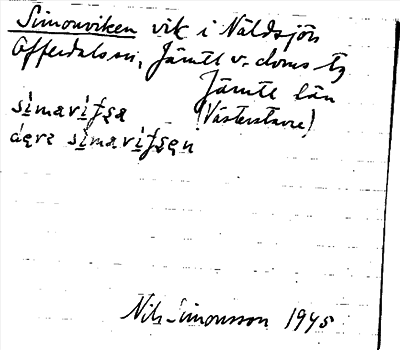 Simonviken vik i Näldsjön
Offerdals sn, Jämtl v. doms tg
Jämtl län
(Västerstavre)
simaviʃsa
simaviʃsen
Nils Simonsson 1945